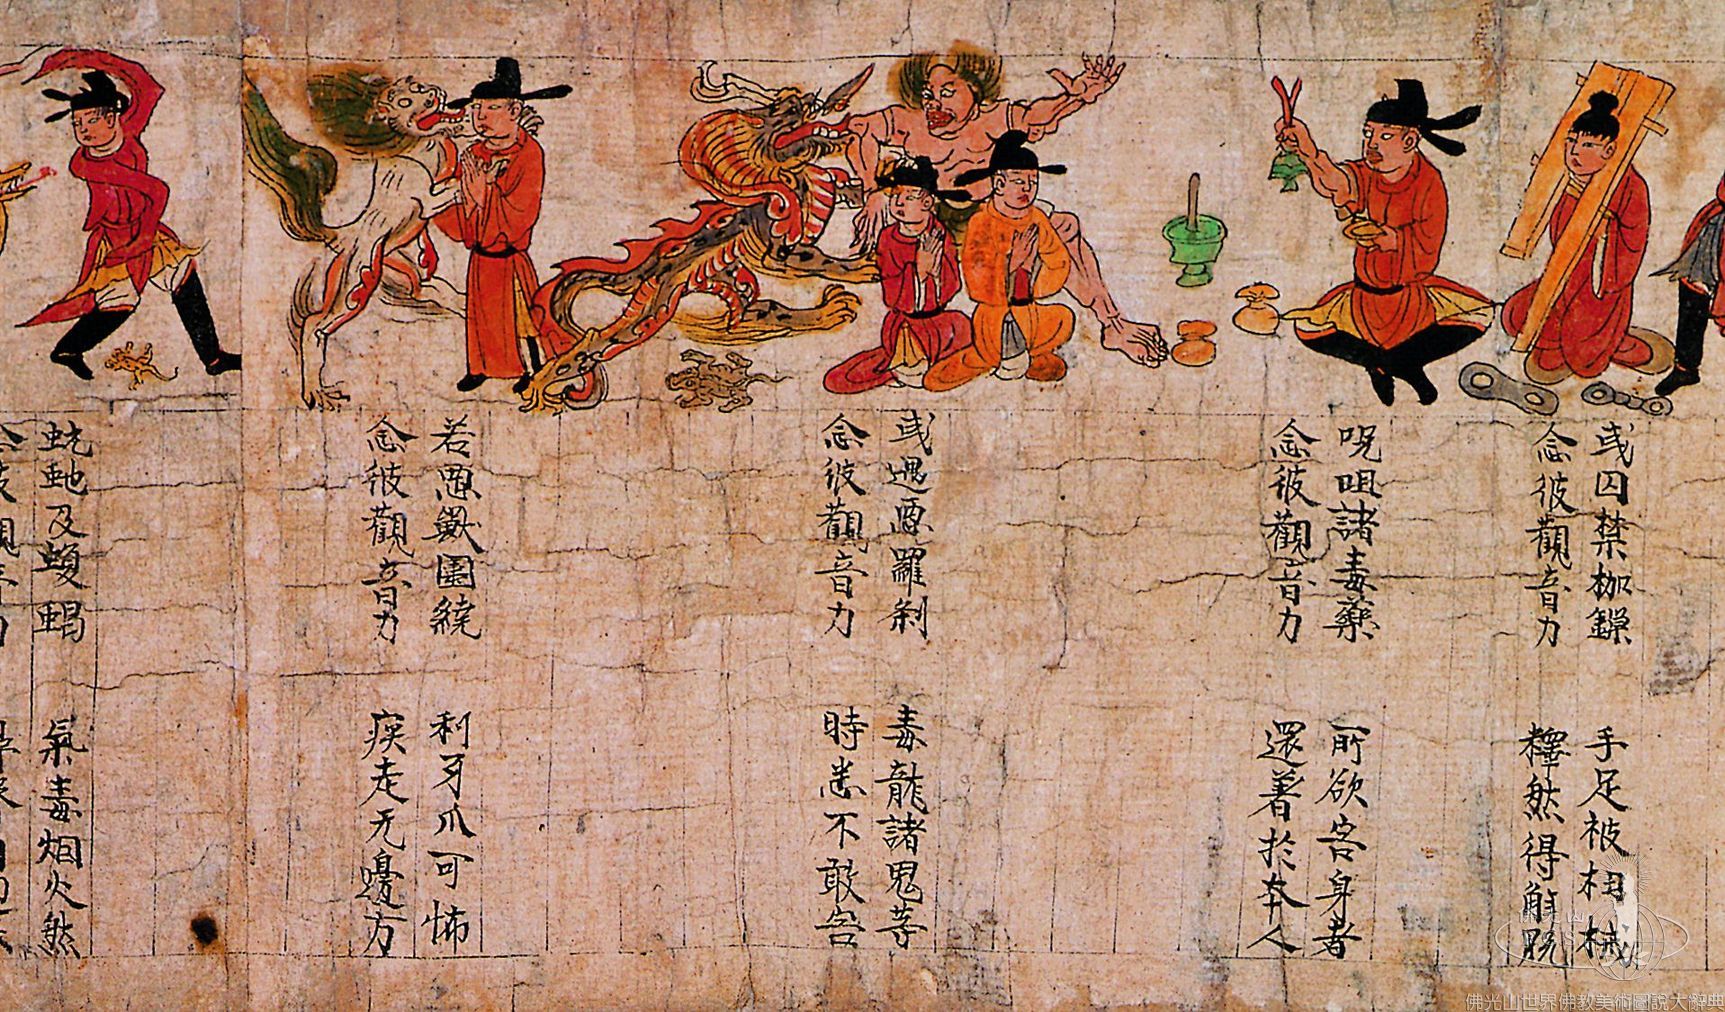 或囚禁枷鏁 手足被杻械
念彼觀音力 釋然得解脫
呪咀諸毒藥 所欲害身者
念彼觀音力 還著於本人
或遇惡羅刹 毒龍諸鬼等
念彼觀音力 時悉不敢害
若惡獸圍繞 利牙爪可怖
念彼觀音力 疾走无邊方
蚖虵及蝮蝎 氣毒烟火然
佛光山世界佛教美術圖說大辭典